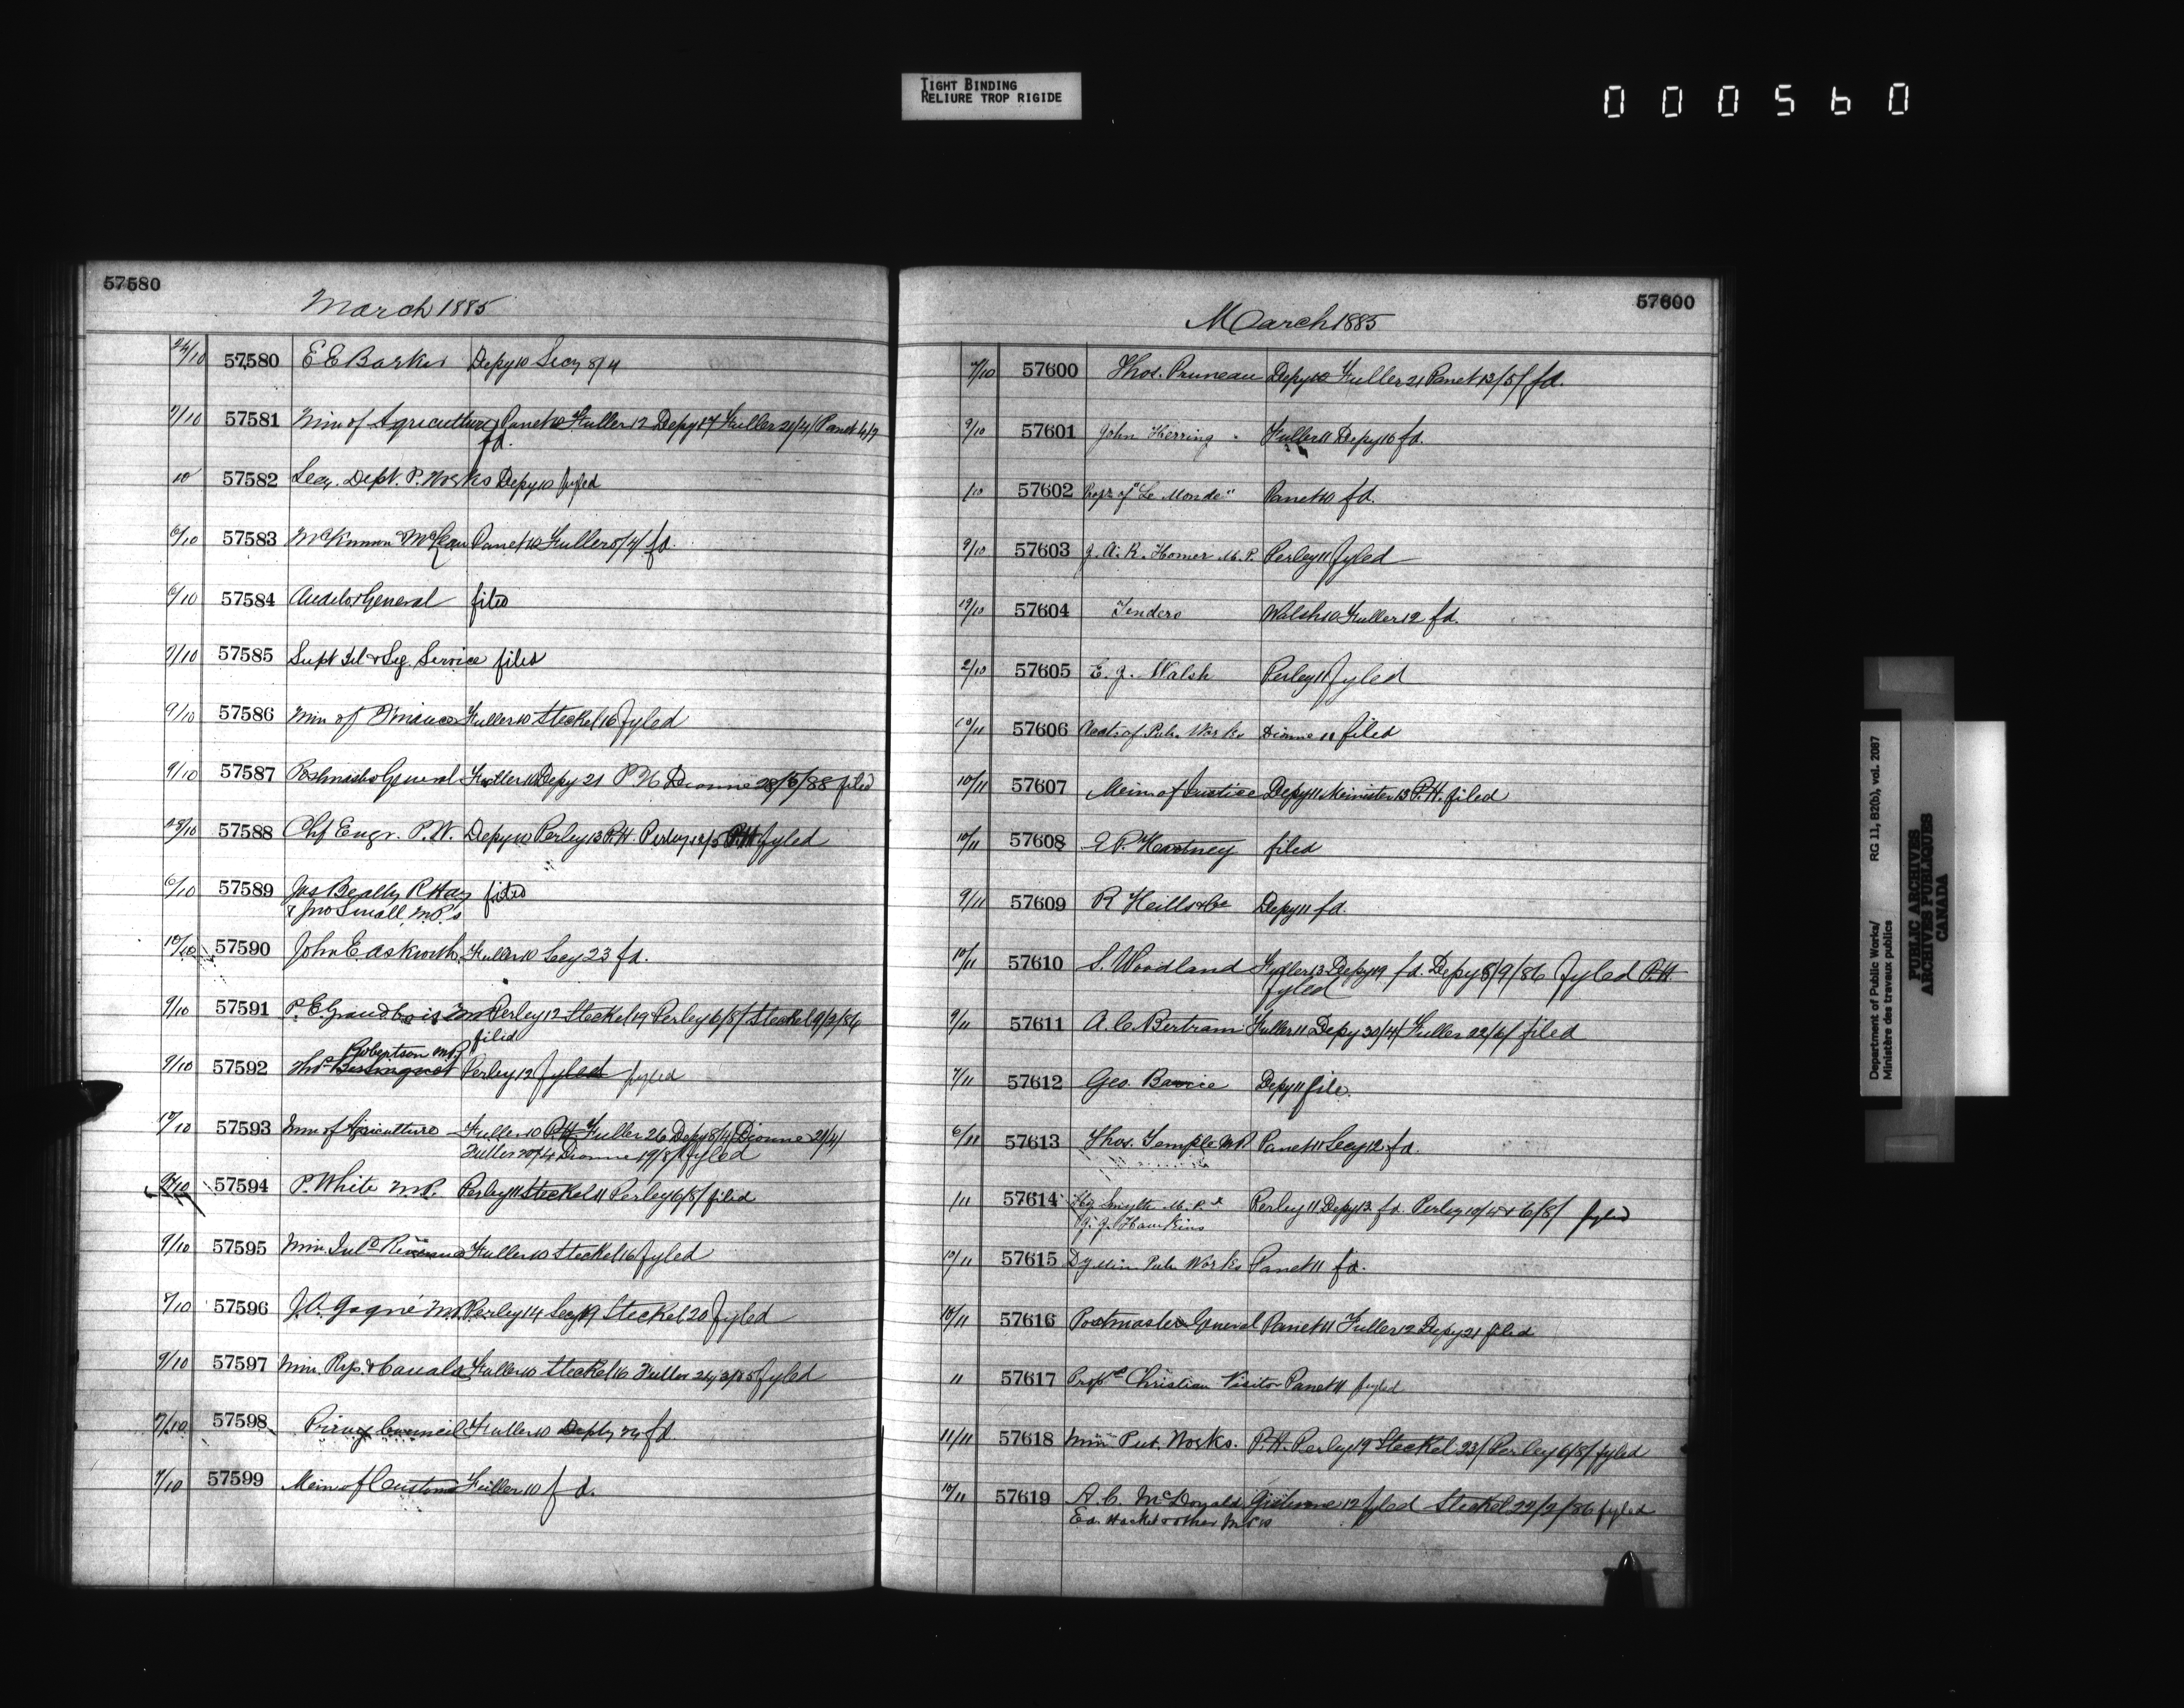 TIGHT BINDING
RELIURE TROP RIGIDE
000560
57580
March 1885
24/10 57580 E E Barker Depy 10 Secy 8/4
7/10 57581 Min of Agriculture Panet 10 Fuller 12 Depy 17 Fuller 21/4/ Panet 4/7
fd.
10 57582 Secy. Dept. P. Works Depy 10 fyled
6/10 57583 McKinnon & McLean Panet 10 Fuller 8/4/ fd.
6/10 57584 Auditor General filed
9/10 57585 Supt Tel & Sig. Service filed
9/10 57586 Min of Finance Fuller 10 Steckel 16 fyled
9/10 57587 Postmaster General Fuller 10 Depy 21 P.H Dionne 28/5/88 filed
28/10 57588 Chf Engr. P.W. Depy 10 Perley 13 P.H. Perley 12/5 P.H fyled
6/10 57589 Jas Beatty R Hay filed
& Jno Small M.P.s
10/10 57590 John E. Askwith Fuller 10 Secy 23 fd.
9/10 57591 P. E. Grandbois MP Perley 12 Steckel 19 Perley 6/8/ Steckel 9/2/86
filed
Robertson MP
9/10 57592 Thos Perley 12 fyled fyled
10/10 57593 Min of Agriculture Fuller 10 P.H. Fuller 26 Depy 8/4/ Dionne 21/4/
Fuller 20/4 Dionne 19/8/ fyled
57594 P. White M.P. Perley 11 Steckel 11 Perley 6/8/ filed
9/10 57595 Min. Inld Revenue Fuller 10 Steckel 16 fyled
7/10 57596 J.O. Gagné M.P. Perley 14 Secy 19 Steckel 20 fyled
9/10 57597 Min. Rys. & Canals Fuller 10 Steckel 16 Fuller fyled
7/10 57598 Privy Council Fuller 10 Depty 24 fd.
7/10 57599 Min of Customs Fuller 10 fd.
57600
March 1885
7/10 57600 Thos. Pruneau Depy 10 Fuller 21 Panet 13/5/ fd.
9/10 57601 John Herring Fuller 11 Depy 16 fd.
/10 57602 Propr of "Le Monde" Panet 10 fd.
9/10 57603 J. A. R. Homer M.P. Perley 11 fyled
10/10 57604 Tenders Walsh 10 Fuller 12 fd.
2/10 57605 E. J. Walsh Perley 11 fyled
10/11 57606 Acct. of Pub. Works Dionne 11 filed
10/11 57607 Min of Justice Depy 11 Minister 13 P.H. filed
10/11 57608 E P. Hartney filed
9/11 57609 R Heills & Co Depy 11 fd.
10/11 57610 S. Woodland Fuller 13 Depy 19 fd. Depy 8/9/86 fyled P.H.
fyled
9/11 57611 A. C. Bertram Fuller 11 Depy 30/4/ Fuller 22/6/ filed
7/11 57612 Geo. Barrie Depy 11 file.
6/11 57613 Thos. Temple M.P. Panet 11 Secy 12 fd.
/11 57614 Hy Smyth M.P. & Perley 11 Depy 12 fd. Perley 6/8/ fyled
J. J. Hawkins
10/11 57615 Dy Min Pub. Works Panet 11 fd.
10/11 57616 Postmaster General Panet 11 Fuller 12 Depy 21 filed
11 57617 Propr Christian Visitor Panet 11 fyled
11/11 57618 Min Pub. Works. P.H. Perley 19 Steckel 23/ Perley 6/8/ fyled
10/11 57619 A. C. McDonald 12 fyled Steckel 22/2/86 fyled
Ed. Hackett & other MPs
Department of Public Works/ RG 11, B2(b), vol. 2087
Ministère des travaux publics
PUBLIC ARCHIVES
ARCHIVES PUBLIQUES
CANADA